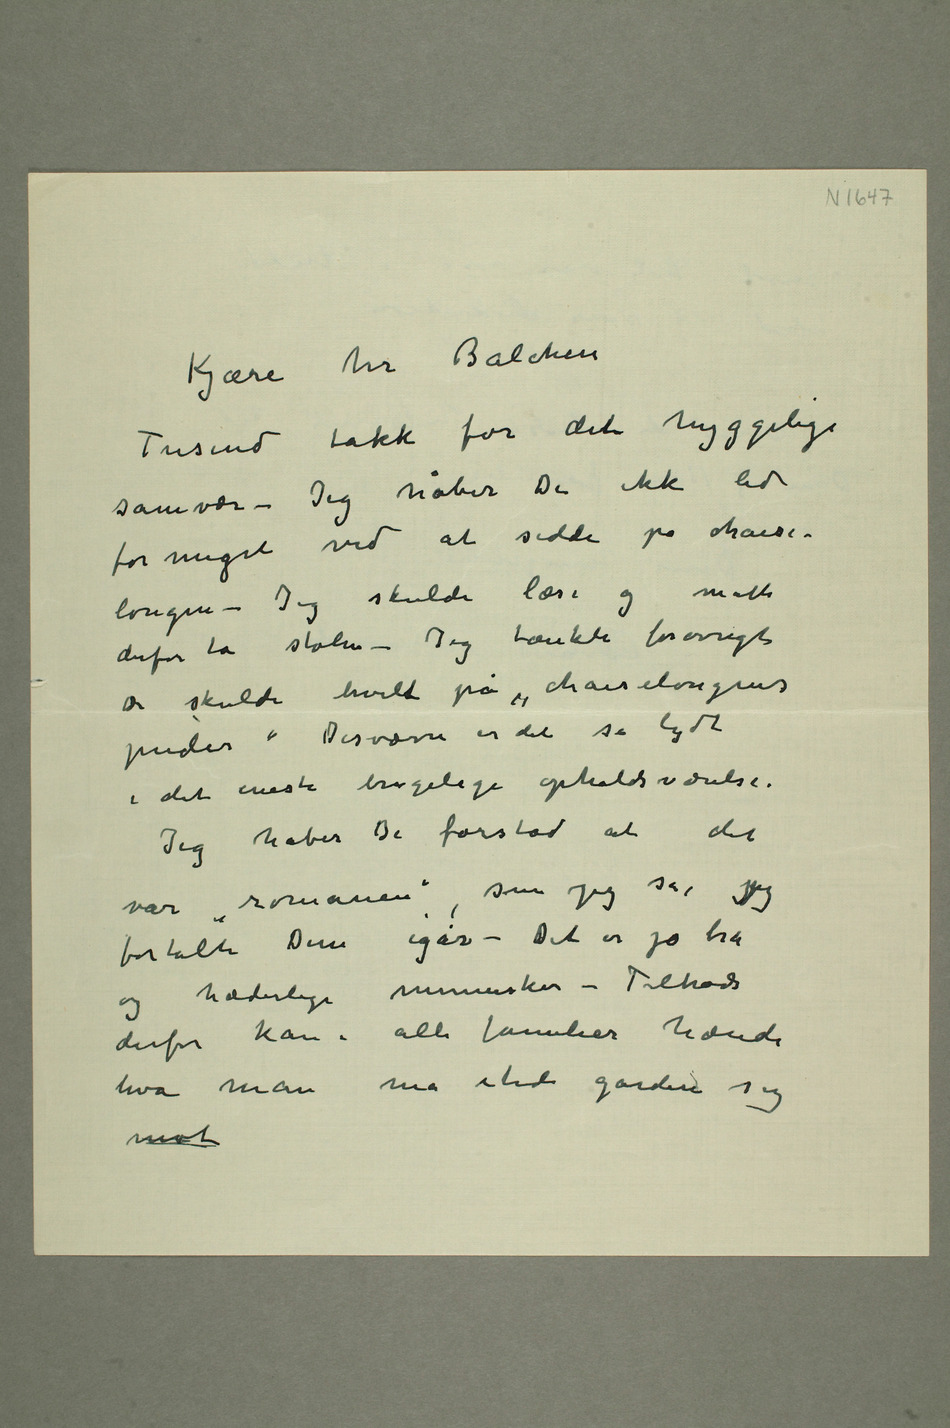 N 1647
Kjære hr Balchen
Tusend takk for dette hyggelige
samvær – Jeg håber De ikke led
for meget ved at sidde på chaise-
longen – Jeg skulde læse og måtte
derfor ta stolen – Jeg tænkte forøvrigt
De skulde hvilt på „chaiselongens
puder“ Desværre er det så lydt
i det eneste brugelige opholdsværelse.
Jeg håber De forstod at det
var „romanen“, som jeg sa, jeg
fortalte Dem igår – Det er jo bra
og hæderlige mennesker – Tiltrods
derfor kan i alle familier hænde
hva man må stride gardere sig
mot